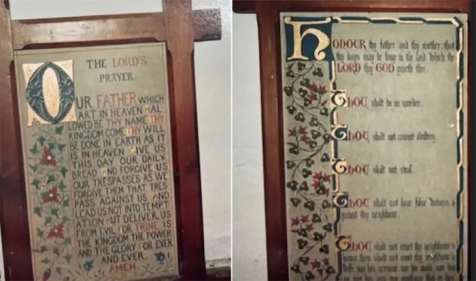 THE LORD'S
PRAYER.
OUR FATHER WHICH
ART IN HEAVEN HAL
LOWED BE THY NAME THY
KINGDOM COME THY WILL
BE DONE IN EARTH AS IT
IS IN HEAVEN GIVE US
THIS DAY OUR DAILY
BREAD AND FORGIVE US
OUR TRESPASSES AS WE
FORGIVE THEM THAT TRES
PASS AGAINST US AND
LEAD US NOT INTO TEMPT
ATION BUT DELIVER US
FROM EVIL FOR THINE IS
THE KINGDOM THE POWER
AND THE GLORY FOR EVER
AND EVER
AMEN
HONOUR thy father and thy mother: that
thy days may be long in the land which the
LORD thy GOD giveth thee.
Thou shalt do no murder.
Thou shalt not commit adultery.
Thou shalt not steal.
Thou shalt not bear false witness
against thy neighbour.
Thou shalt not covet thy neighbour's